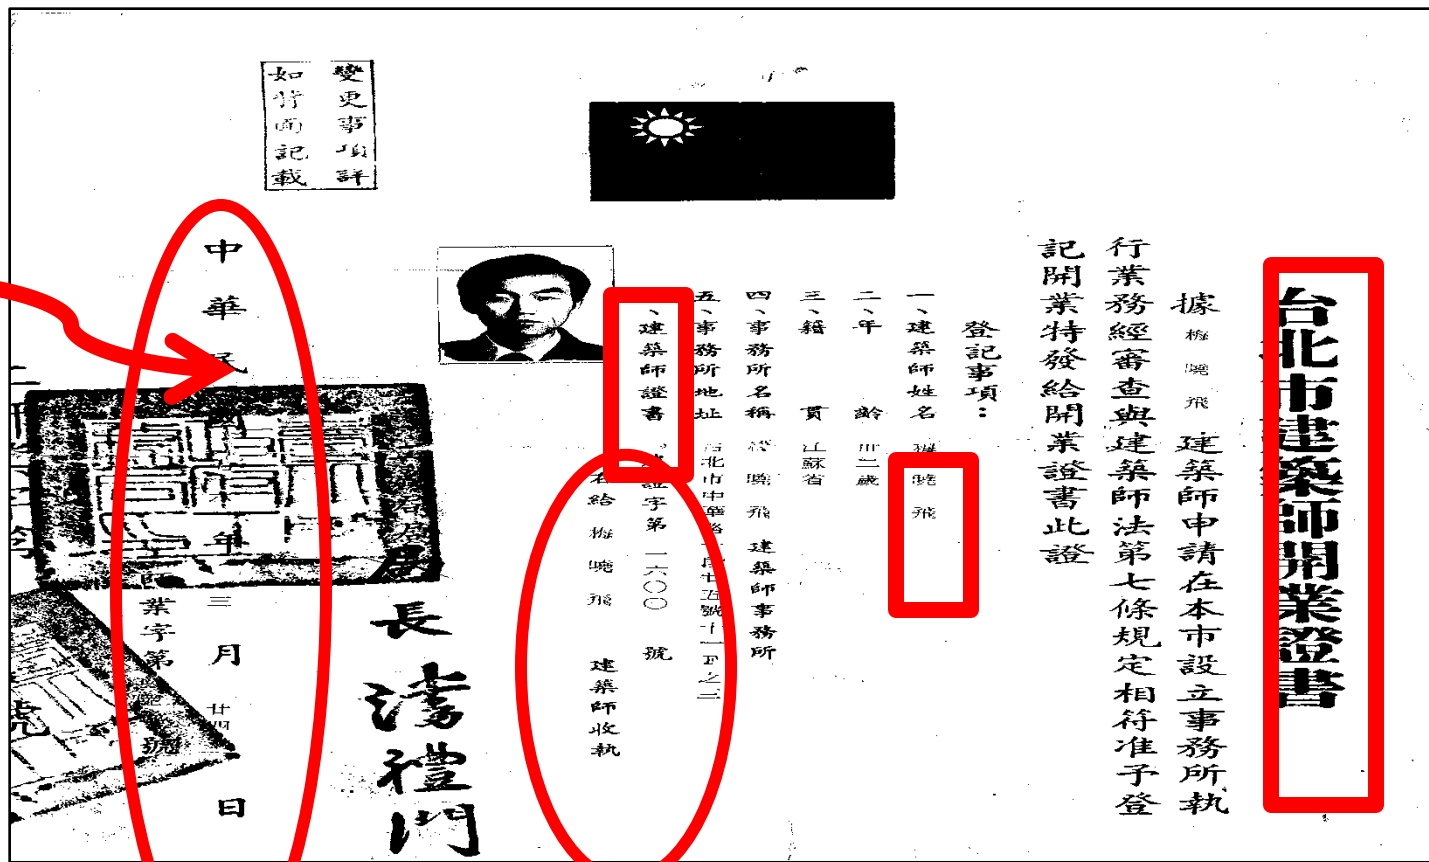 台北市建築師開業證書
據梅曉飛建築師申請在本市設立事務所執
行業務經審查與建築師法第七條規定相符准予登
記開業特發給開業證書此證
登記事項：
一、建築師姓名 梅曉飛
二、年齡 卅二歲
三、籍貫 江蘇省
四、事務所名稱 梅曉飛建築師事務所
五、事務所地址 台北市中華路 段廿五號十一F之二
、建築師證書 證字第一六〇〇號
右給梅曉飛建築師收執
長
禮門
中華民 年三月廿四日
業字第 號
變更事項詳
如背面記載